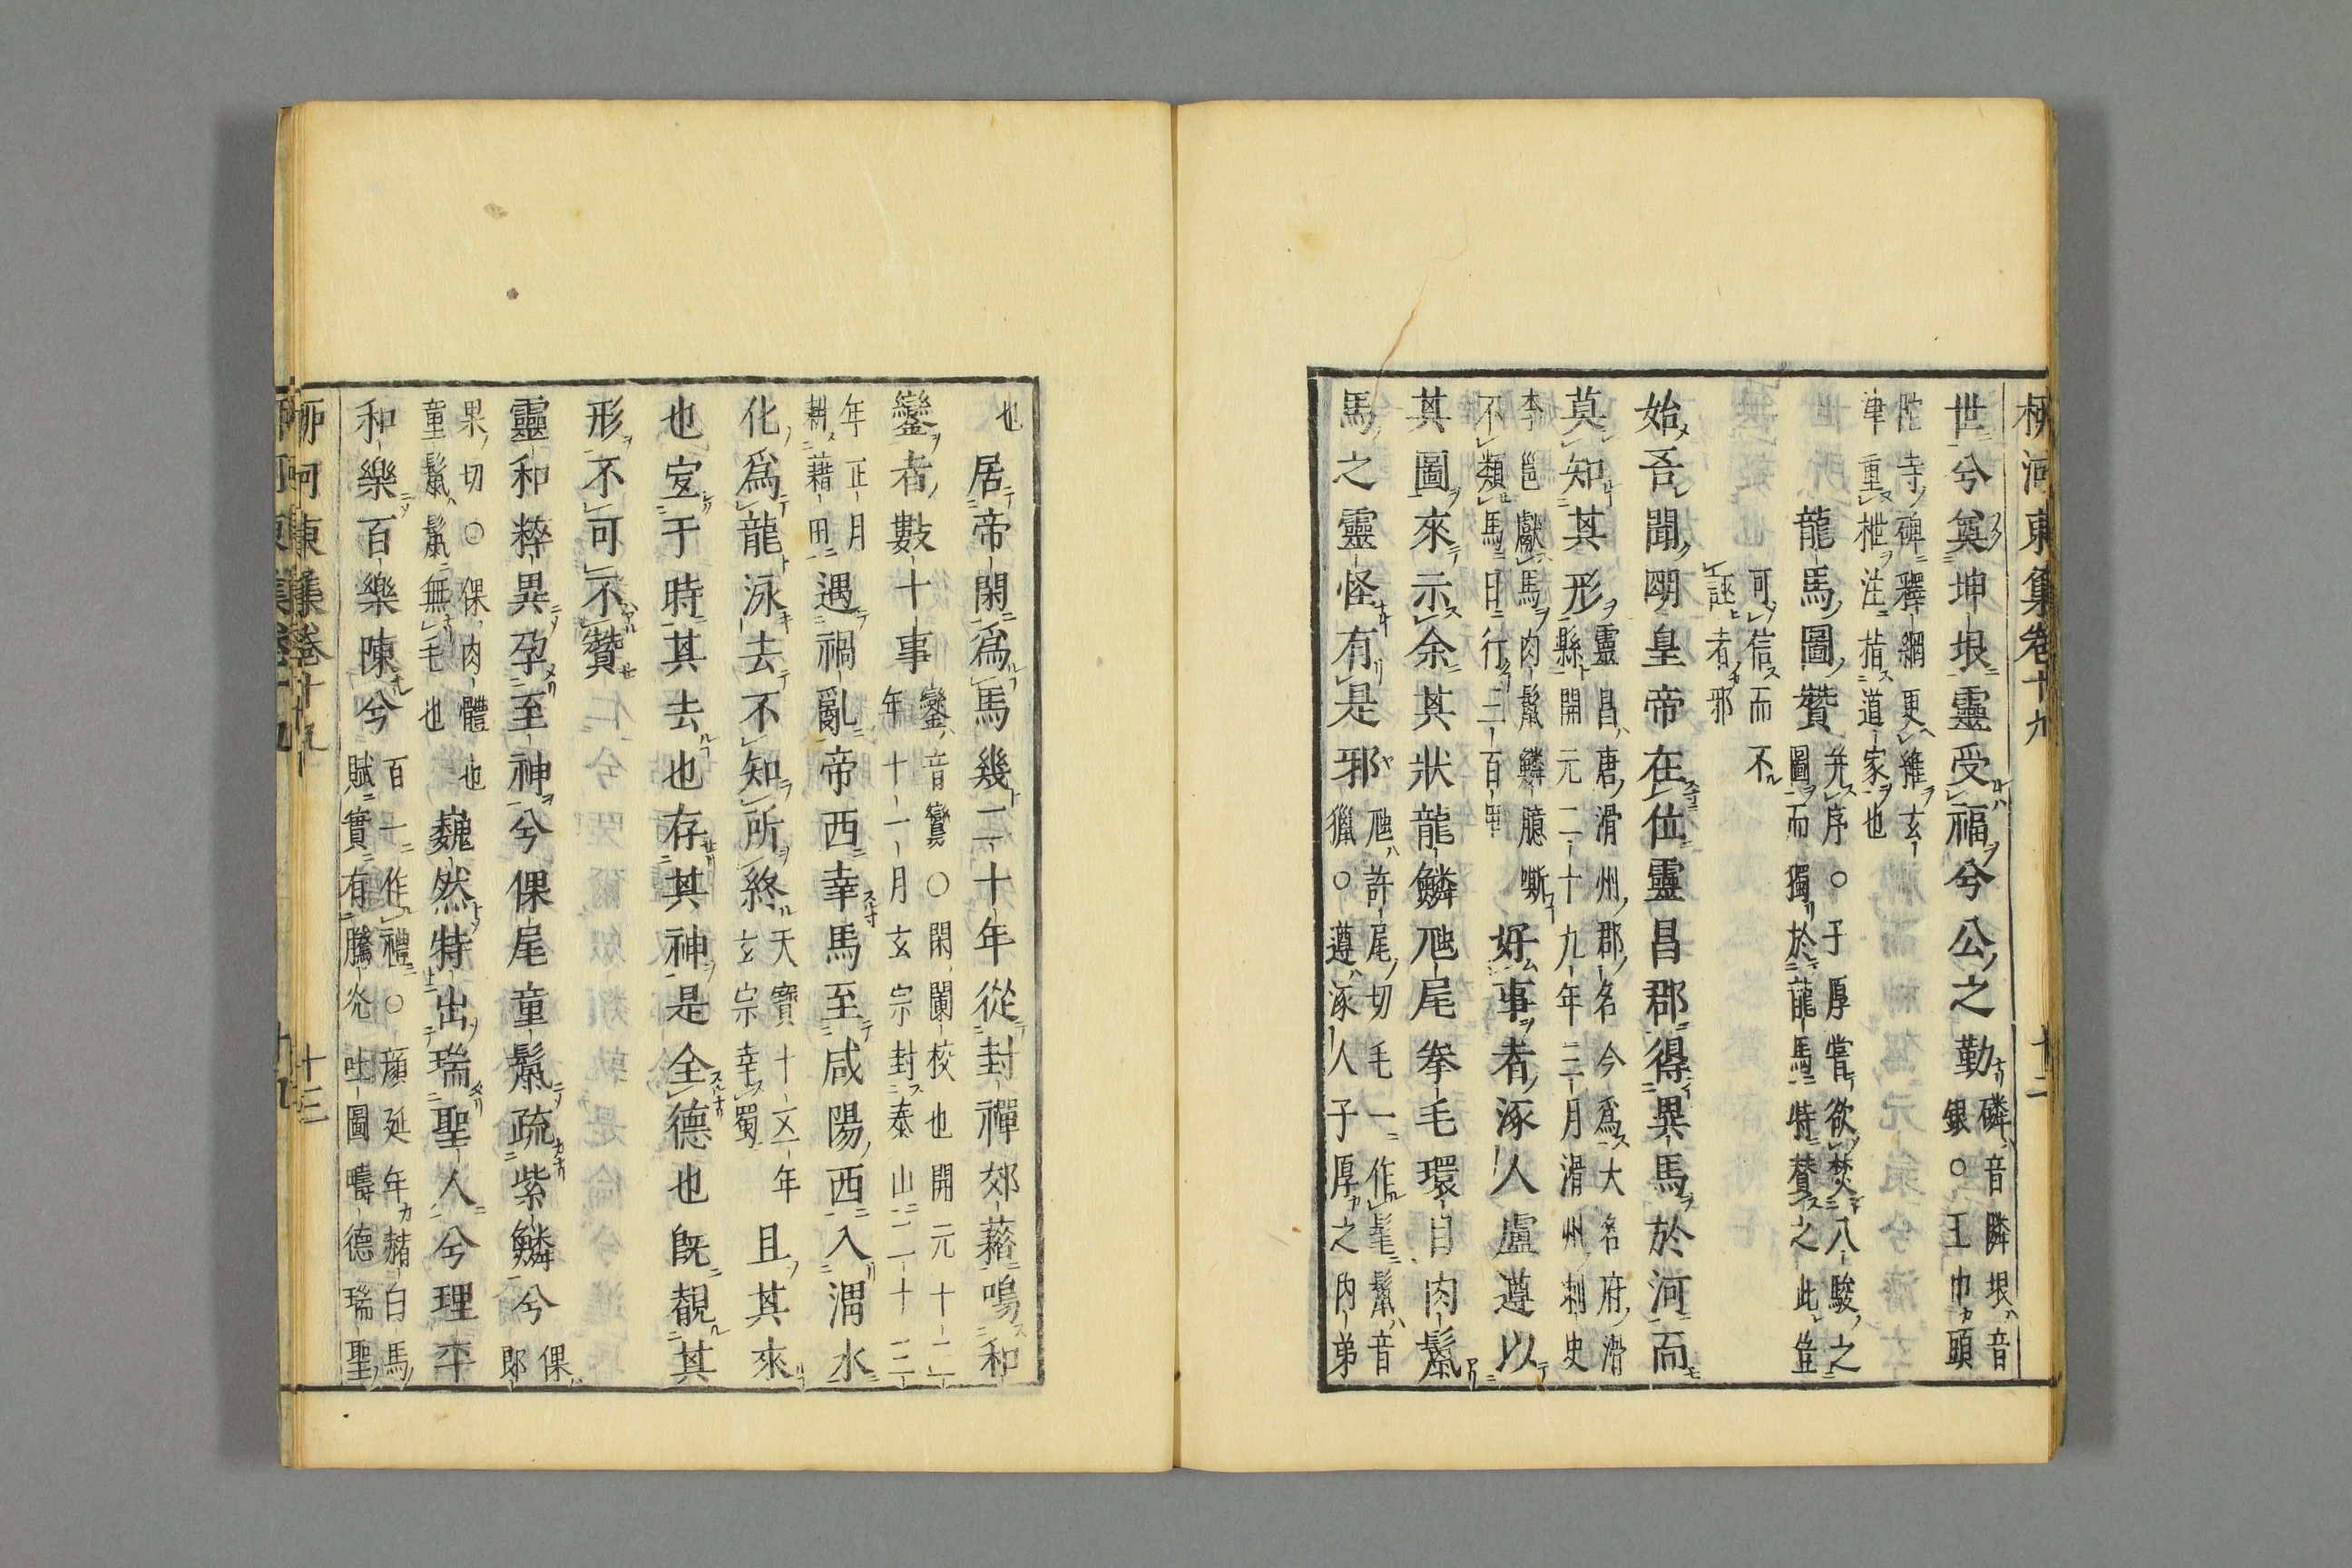 柳河東集卷十九 十二
世兮奠坤垠靈受福兮公之勤磷音隣垠音
銀○王巾頭
陀寺碑釋網更維玄
津重枻注楷道家也
龍馬圖贊并序○子厚嘗欲焚八駿之
圖而獨於龍馬特贊之此豈
可信而不
誣者邪
始吾聞明皇帝在位靈昌郡得異馬於河而
莫知其形靈昌唐滑州郡名今爲大名府滑
縣開元二十九年三月滑州刺史
李邕獻馬肉鬣鱗臆嘶
不類馬日行二百里好事者涿人盧遵以
其圖來示余其狀龍鱗虺尾拳毛環目肉鬣
馬之靈怪有是邪虺許尾切毛一作髦鬣音
獵○遵涿人子厚之內弟
也居帝閑爲馬幾二十年從封禪郊藉鳴和
鑾者數十事鑾音鸞○閑闌校也開元十二
年十一月玄宗封泰山二十三
年正月
耕藉田遇禍亂帝西幸馬至咸陽西入渭水
化爲龍泳去不知所終天寶十五年
玄宗幸蜀且其來
也宜于時其去也存其神是全德也旣覩其
形不可不贊
靈和粹異孕至神兮倮尾童鬣疏紫鱗兮倮
郎果切○倮肉體也
童鬣鬣無毛也巍然特出瑞聖人兮理平
和樂百樂陳兮百一作禮○顔延年赭白馬
賦實有騰光吐圖疇德瑞聖
柳河東集卷十九 十三